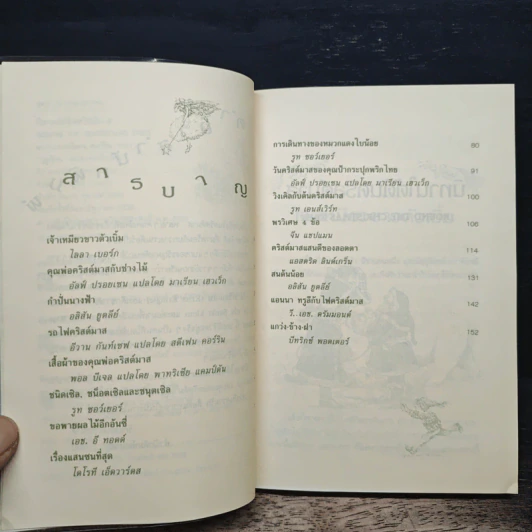 สารบาญ
เจ้าเหมียวขาวตัวเบิ้ม
ไลลา เบอร์ก
คุณพ่อคริสต์มาสกับช่างไม้
อัลฟ์ ปรอยเซน แปลโดย มาเรียน เฮวเว็ก
กำปั่นนางฟ้า
อลิสัน ยูตลีย์
รถไฟคริสต์มาส
อีวาน กันท์เชฟ แปลโดย สตีเฟน คอร์ริน
เสื้อม้าของคุณพ่อคริสต์มาส
พอล บีเจล แปลโดย พาทริเซีย แคมป์ตัน
ชนิดเซิล, ชน็อตเซิลและชนุตเซิล
รูท ซอว์เยอร์
ขอพายผลไม้อีกอันซี่
เอช. อี ทอดด์
เรื่องแสนซนที่สุด
โดโรที เอ็ดวาร์ดส
การเดินทางของหมวกแดงใบน้อย 80
รูท ซอว์เยอร์
วันคริสต์มาสของคุณป้ากระปุกพริกไทย 91
อัลฟ์ ปรอยเซน แปลโดย มาเรียน เฮวเว็ก
วิงเคิลกับต้นคริสต์มาส 100
รูท เอนส์เวิร์ท
พรวิเศษ ๔ ข้อ 106
จีน แชปแมน
คริสต์มาสแสนดีของลอตตา 114
แอสตริด ลินด์เกร็น
สนต้นน้อย 131
อลิสัน ยูตลีย์
แอนนา ทรูลีกับไฟคริสต์มาส 142
วี..เอช. ดรัมมอนด์
แกว่ง-ช้าง-ผ่า 152
บีทริกซ์ พอตเตอร์